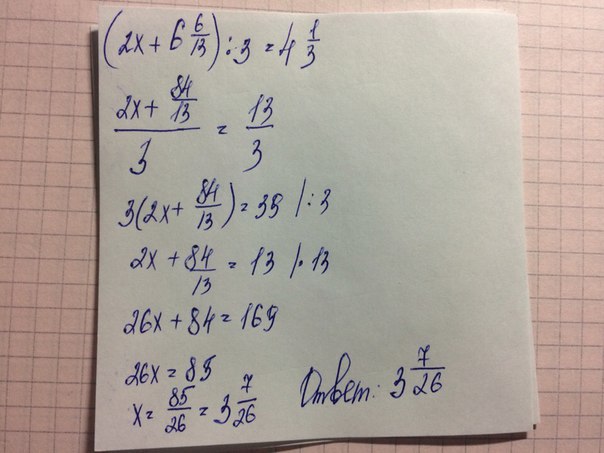 (2x + 6 6/13) : 3 = 4 1/3
(2x + 84/13)/3 = 13/3
3(2x + 84/13) = 39 | : 3
2x + 84/13 = 13 | · 13
26x + 84 = 169
26x = 85
x = 85/26 = 3 7/26
Ответ: 3 7/26